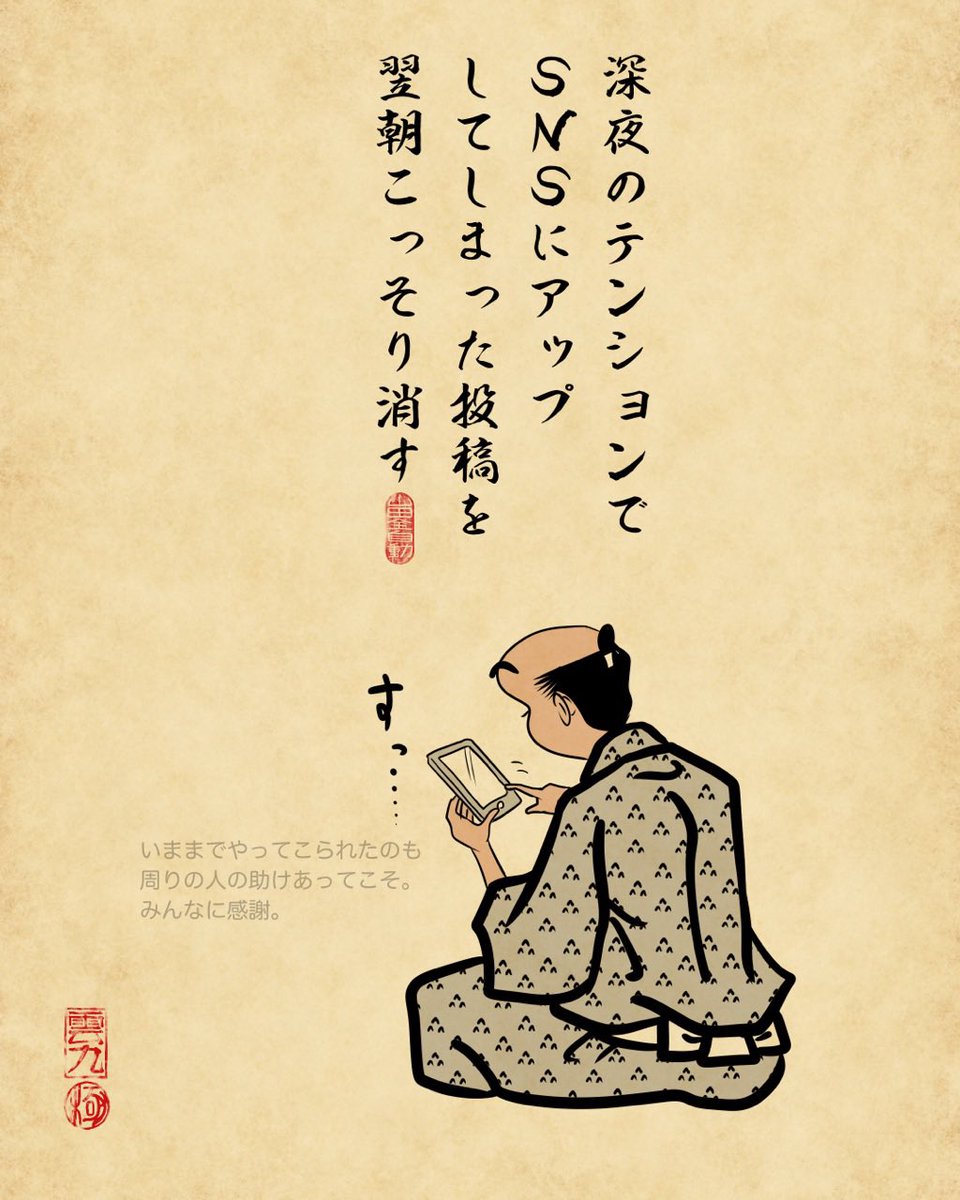 深夜のテンションで
SNSにアップ
してしまった投稿を
翌朝こっそり消す
すっ……
いままでやってこられたのも
周りの人の助けあってこそ。
みんなに感謝。